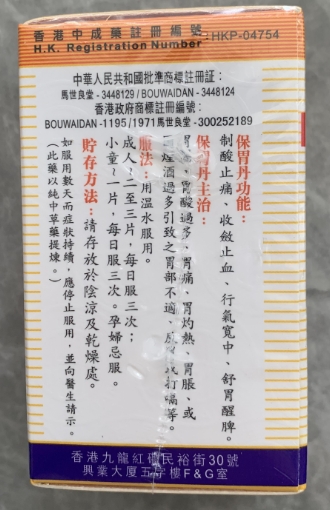 香港中成藥註冊編號:HKP-04754
H.K. Registration Number
中華人民共和國批準商標註冊証：
馬世良堂 - 3448129/ BOUWAIDAN - 3448124
香港政府商標註冊編號：
BOUWAIDAN -1195/1971 馬世良堂 -300252189
保胃丹功能：
制酸止痛、收斂止血、行氣寬中、舒胃醒脾。
保胃丹主治：
胃熱、胃酸過多、胃痛、胃灼熱、胃脹、或
煙酒過多引致之胃部不適、或打嗝等。
服法：用溫水服用。
成人～二至三片，每日服三次；
小童～一片，每日服三次。孕婦忌服。
貯存方法：請存放於陰涼及乾燥處。
如服用數天而症狀持續，應停止服用，並向醫生請示。
（此藥以純中草藥提煉。）
香港九龍紅磡民裕街30號
興業大厦五字樓F&G室